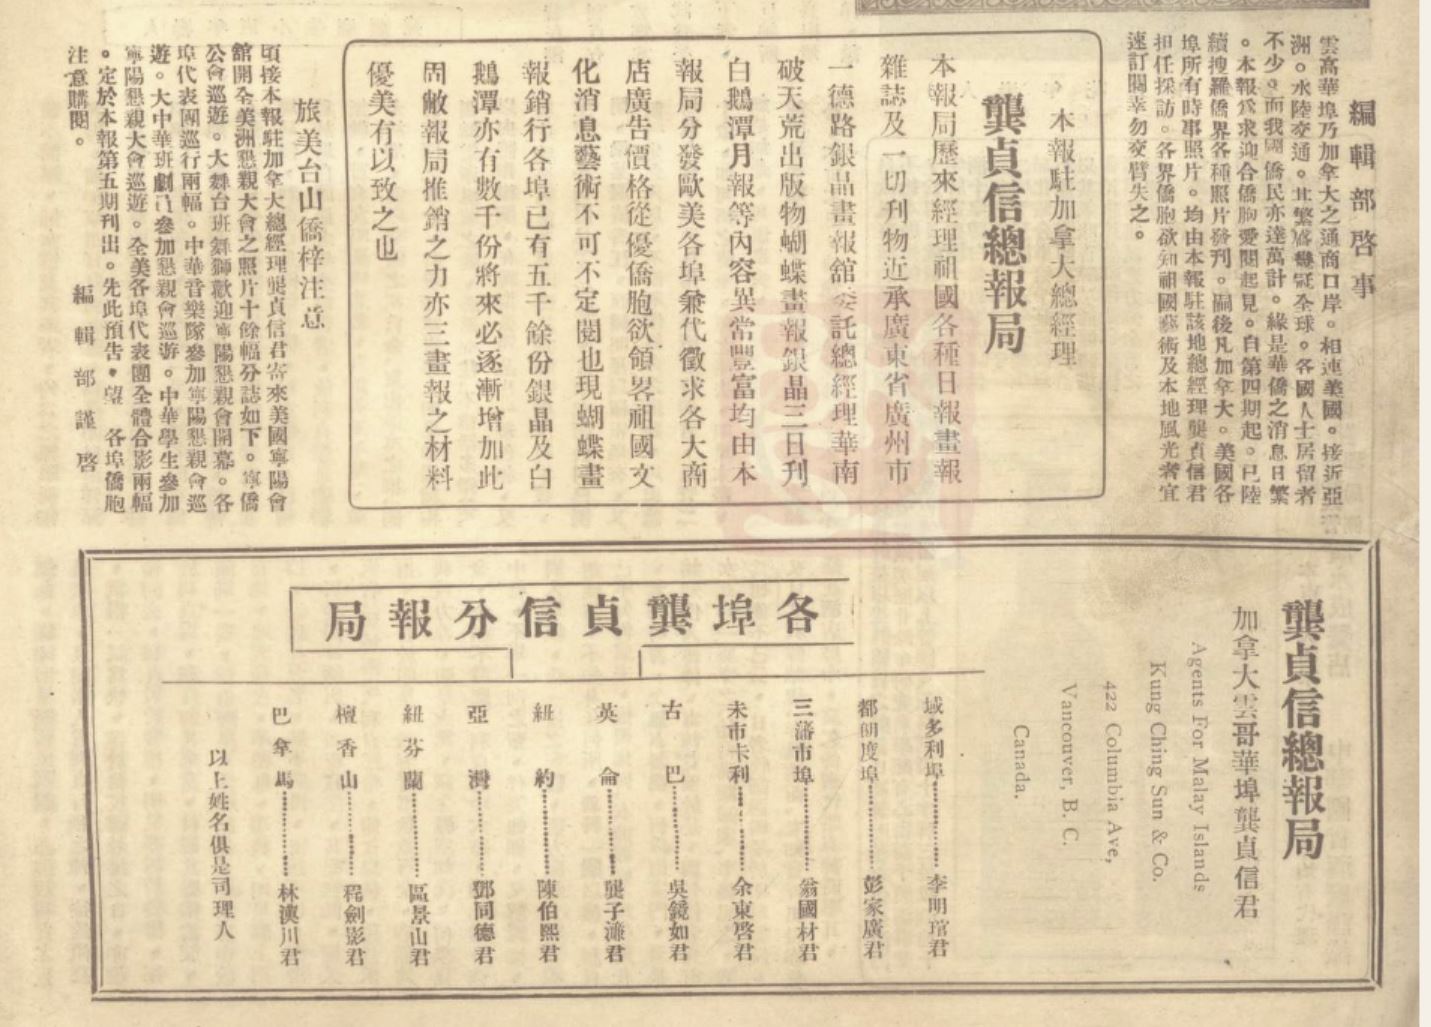 編輯部啓事
雲高華埠乃加拿大之通商口岸。相連美國。接近亞
洲。水陸交通。其繁盛冠全球。各國人士居留者
不少。而我國僑民亦達萬計。緣是華僑之消息日繁
。本報爲求迎合僑胞愛閱起見。自第四期起。已陸
續搜羅僑界各種照片發刊。嗣後凡加拿大。美國各
埠所有時事照片。均由本報駐該地總經理龔貞信君
担任採訪。各界僑胞欲知祖國藝術及本地風光者宜
速訂閱幸勿交臂失之。
本報駐加拿大總經理
龔貞信總報局
本報局歷來經理祖國各種日報畫報
雜誌及一切刊物近承廣東省廣州市
一德路銀晶畫報舘委託總經理華南
破天荒出版物蝴蝶畫報銀晶三日刊
白鵝潭月報等內容異常豐富均由本
報局分發歐美各埠兼代徵求各大商
店廣告價格從優僑胞欲領畧祖國文
化消息藝術不可不定閱也現蝴蝶畫
報銷行各埠已有五千餘份銀晶及白
鵝潭亦有數千份將來必逐漸增加此
固敝報局推銷之力亦三畫報之材料
優美有以致之也
旅美台山僑梓注意
頃接本報駐加拿大總經理龔貞信君寄來美國寧陽會
舘開全美洲懇親大會之照片十餘幅分誌如下。寧僑
公會巡遊。大舞台班舞獅歡迎寧陽懇親會開幕。各
埠代表團巡行兩幅。中華音樂隊參加寧陽懇親會巡
遊。大中華班劇員參加懇親會巡游。中華學生參加
寧陽懇親大會巡遊。全美各埠代表團全體合影兩幅
。定於本報第五期刊出。先此預告。望 各埠僑胞
注意購閱。
編輯部謹啓
龔貞信總報局
加拿大雲哥華埠龔貞信君
Agents For Malay Islands
Kung Ching Sun & Co.
422 Columbia Ave,
Vancouver, B. C.
Canada.
各埠龔貞信分報局
域多利埠………李明琯君
都朗度埠………彭家廣君
三藩市埠………翁國材君
未市卡利………余東啓君
古巴………吳鏡如君
英侖………龔子濂君
紐約………陳伯熙君
亞灣………鄧同德君
紐芬蘭………區景山君
檀香山………程劍影君
巴拿馬………林澳川君
以上姓名俱是司理人